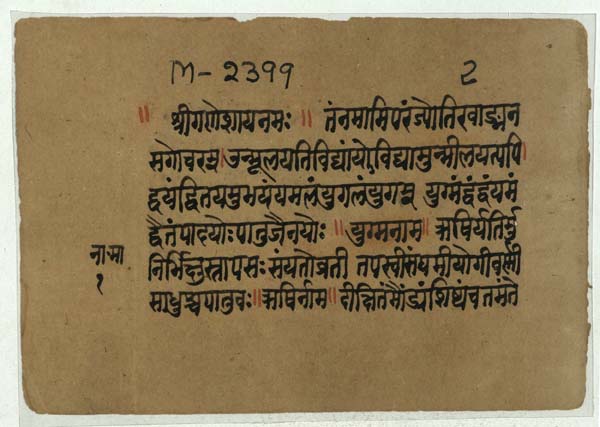 M-2399
2
॥ श्रीगणेशायनमः ॥ तंनमामिपरंज्योतिरवाङ्मन
सगोचरम् उन्मूलयतिविद्यांयोविद्यामुन्मीलयत्यपि
द्वयंद्वितयमुभयंयमलंयुगलंयुगम् युग्मंद्वंद्वंयमं
द्वैतंपादयोःपातुजैनयोः ॥ युग्मनाम ॥ ऋषिर्यतिर्मु
निर्भिक्षुस्तापसःसंयतोव्रती तपस्वीसंयमीयोगीवर्णी
साधुश्चपातुवः॥ऋषिर्नाम॥ दीक्षितंमौंड्यंशिष्यंचतमंते
ना.मा
१